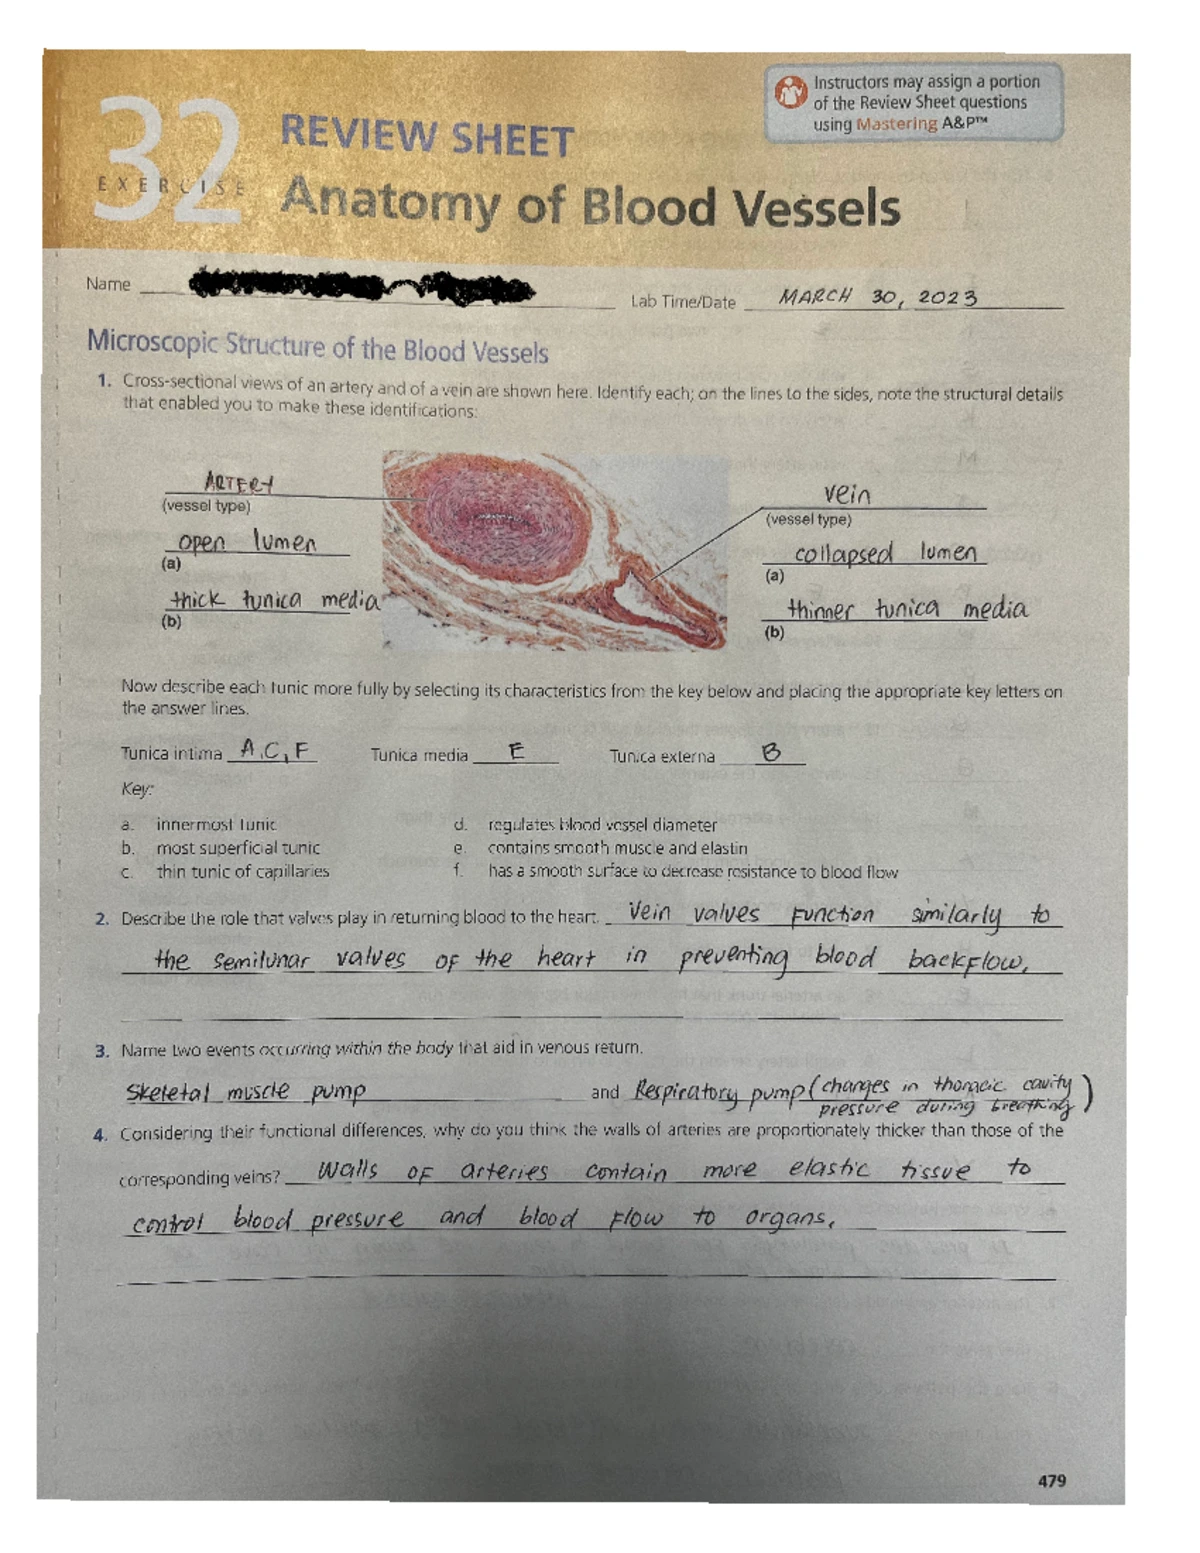 Instructors may assign a portion
of the Review Sheet questions
using Mastering A&P™
32
EXERCISE
REVIEW SHEET
Anatomy of Blood Vessels
Name
Lab Time/Date MARCH 30, 2023
Microscopic Structure of the Blood Vessels
1. Cross-sectional views of an artery and of a vein are shown here. Identify each; on the lines to the sides, note the structural details
that enabled you to make these identifications:
ARTERY
(vessel type)
open lumen
(a)
thick tunica media
(b)
vein
(vessel type)
collapsed lumen
(a)
thinner tunica media
(b)
Now describe each tunic more fully by selecting its characteristics from the key below and placing the appropriate key letters on
the answer lines.
Tunica intima A, C, F Tunica media E Tunica externa B
Key:
a. innermost tunic
b. most superficial tunic
c. thin tunic of capillaries
d. regulates blood vessel diameter
e. contains smooth muscle and elastin
f. has a smooth surface to decrease resistance to blood flow
2. Describe the role that valves play in returning blood to the heart. Vein valves function similarly to
the semilunar valves of the heart in preventing blood backflow.
3. Name two events occurring within the body that aid in venous return.
Skeletal muscle pump and Respiratory pump (changes in thoracic cavity
pressure during breathing)
4. Considering their functional differences, why do you think the walls of arteries are proportionately thicker than those of the
corresponding veins? Walls of arteries contain more elastic tissue to
control blood pressure and blood flow to organs.
479